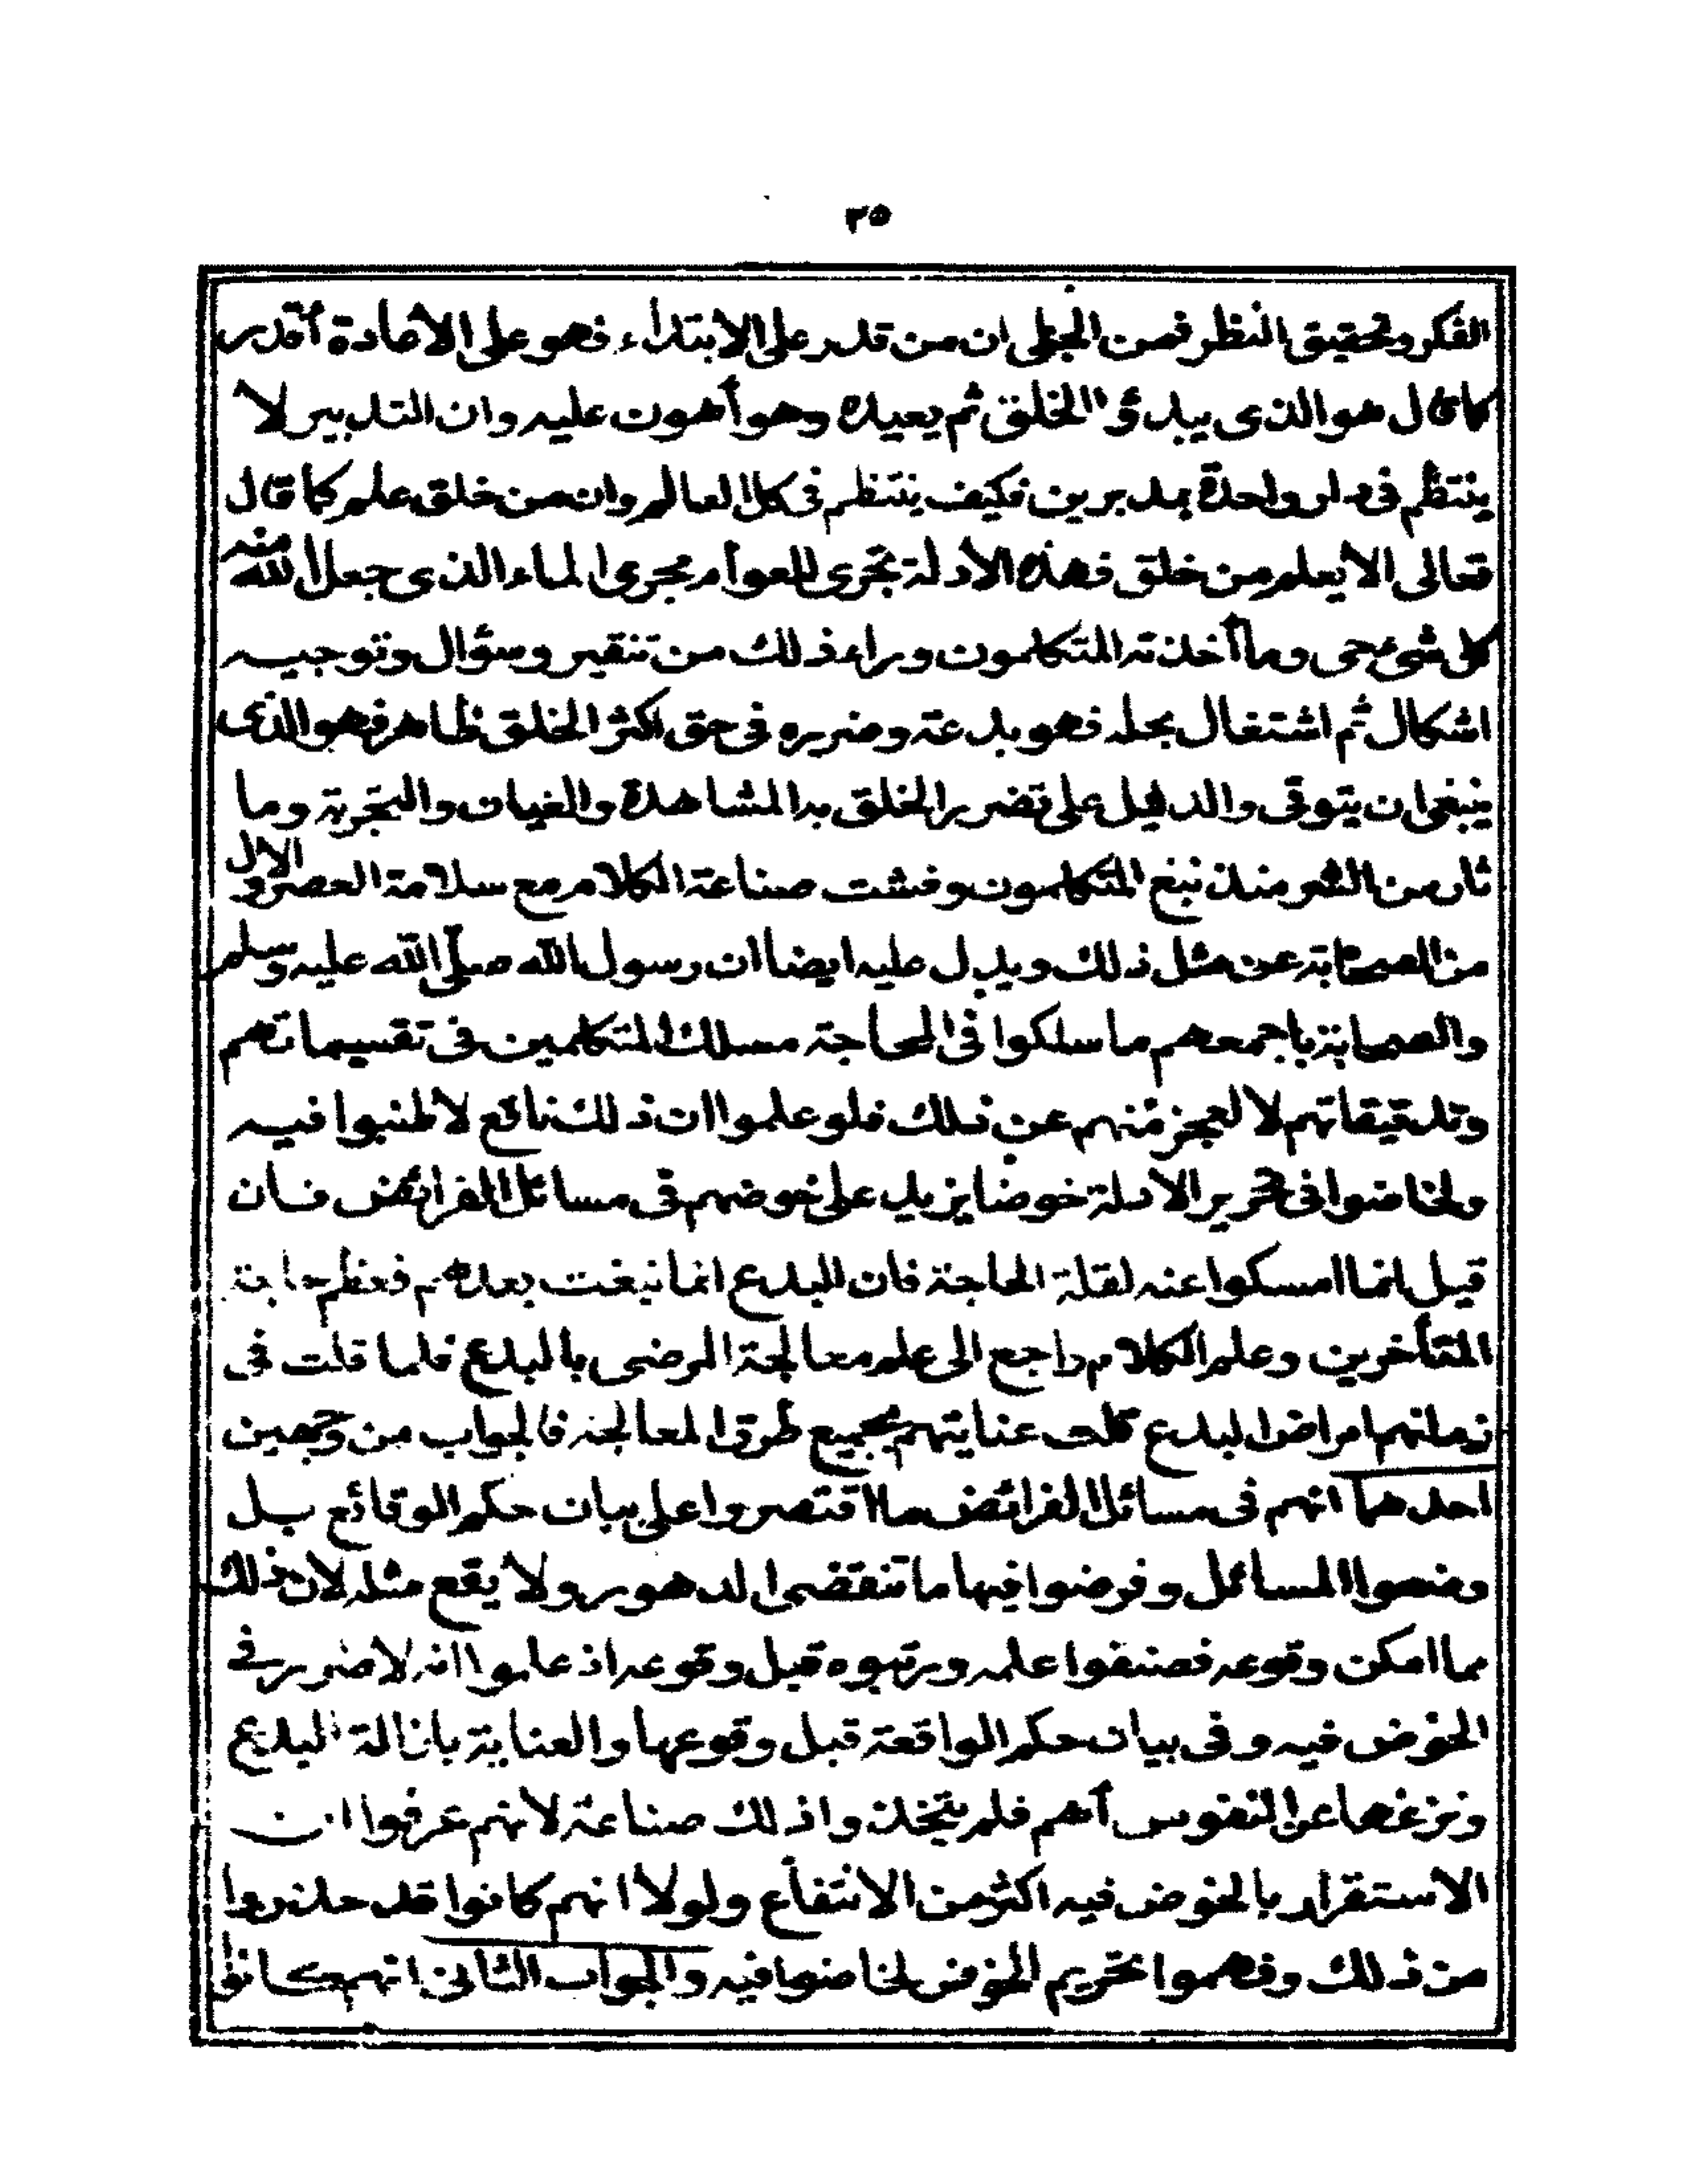 ٣٥
الفكر وتحقيق النظر فمن الجلى ان من قدر على الابتداء فهو على الاعادة أقدر
كما قال هو الذى يبدؤ الخلق ثم يعيده وهو أهون عليه وان التدبير لا
ينتظم فى دار واحدة بمدبرين فكيف ينتظم فى كل العالم وان من خلق علم كما قال
تعالى الا يعلم من خلق فهذه الادلة تجرى للعوام مجرى الماء الذى جعل الله منه
كل شئ حى وما أخذته المتكلمون وراء ذلك من تنقير وسؤال وتوجيه
اشكال ثم اشتغال بحله فهو بدعة وضرره فى حق اكثر الخلق ظاهر فهو الذى
ينبغى ان يتوقى والدليل على تضرر الخلق به المشاهدة والعيان والتجربة وما
ثار من الشر منذ نبغ المتكلمون وفشت صناعة الكلام مع سلامة العصر الاول
من الصحابة عن مثل ذلك ويدل عليه ايضا ان رسول الله صلى الله عليه وسلم
والصحابة باجمعهم ما سلكوا فى المحاجة مسلك المتكلمين فى تقسيماتهم
وتدقيقاتهم لا لعجز منهم عن ذلك فلو علموا ان ذلك نافع لاطنبوا فيه
ولخاضوا فى تحرير الادلة خوضا يزيد على خوضهم فى مسائل الفرائض فان
قيل انما امسكوا عنه لقلة الحاجة فان البدع انما نبغت بعدهم فعظم حاجة
المتأخرين وعلم الكلام راجع الى علم معالجة المرضى بالبدع فلما قلت فى
زمانهم امراض البدع قلت عنايتهم بجميع طرق المعالجة فالجواب من وجهين
احدهما انهم فى مسائل الفرائض ما اقتصروا على بيان حكم الوقائع بل
وضعوا المسائل وفرضوا فيها ما تنقضى الدهور ولا يقع مثله لان ذلك
مما امكن وقوعه فصنفوا علمه ورتبوه قبل وقوعه اذ علموا انه لا ضرر فى
الخوض فيه وفى بيان حكم الواقعة قبل وقوعها والعناية بازالة البدع
ونزعها عن النفوس أهم فلم يتخذوا ذلك صناعة لانهم عرفوا ان
الاستقرار بالخوض فيه اكثر من الانتفاع ولولا انهم كانوا قد حذروا
من ذلك وفهموا تحريم الخوض لخاضوا فيه والجواب الثانى انهم كانوا